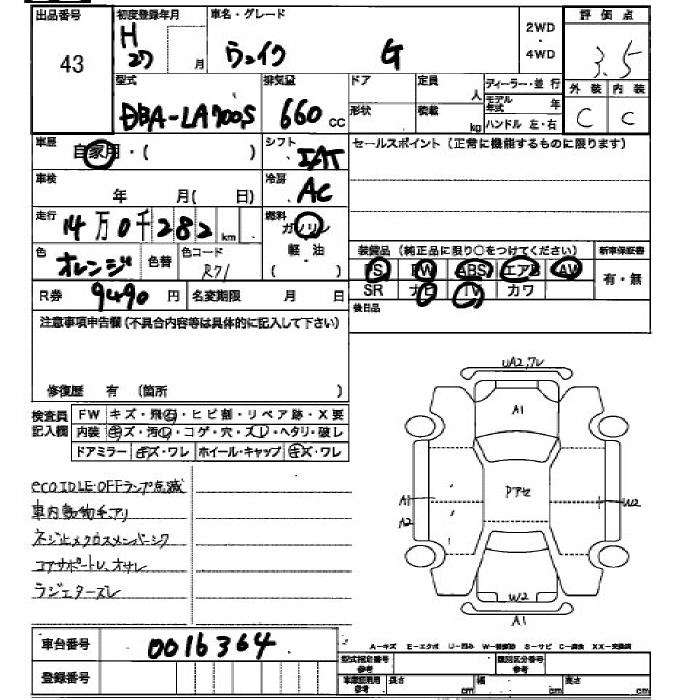 出品番号 43
初度登録年月 H 27 月
車名・グレード ウェイク G
2WD・4WD
評価点 3.5
外装 内装
C C
型式 DBA-LA700S
排気量 660 CC
ドア 形状
定員 人 積載 kg
ディーラー・並 行
モデル年式 年
ハンドル 左・右
車歴 自家用・( )
シフト IAT
セールスポイント (正常に機能するものに限ります)
車検 年 月( 日)
冷房 AC
走行 14万0千282 km
燃料 ガソリン 軽・油
色 オレンジ 色替 色コード R71
装備品 (純正品に限り○をつけてください) 新車保証書
PS PW ABS エアB AW 有・無
SR ナビ TV カワ
R券 9490円 名変期限 月 日
後日品
注意事項申告欄(不具合内容等は具体的に記入して下さい)
修復歴 有 (箇所 )
検査員記入欄
FW キズ・飛石・ヒビ割・リペア跡・X要
内装 キズ・汚レ・コゲ・穴・スレ・ヘタリ・破レ
ドアミラー キズ・ワレ ホイール・キャップ キズ・ワレ
eco IDLE・OFFランプ点滅
車内動物毛アリ
ネジ止メクロスメンバーシワ
コアサポートU、オサレ
ラジエターズレ
UA2,ワレ
A1
Pアセ
A1
A2
W2
W2
A1
車台番号 0016364
登録番号
A－キズ E－エクボ U－凹み S－サビ C－腐食 XX－交換済
型式指定番号 参考
類別区分番号 参考
車庫証明用 参考 長さ cm 幅 cm 高さ cm